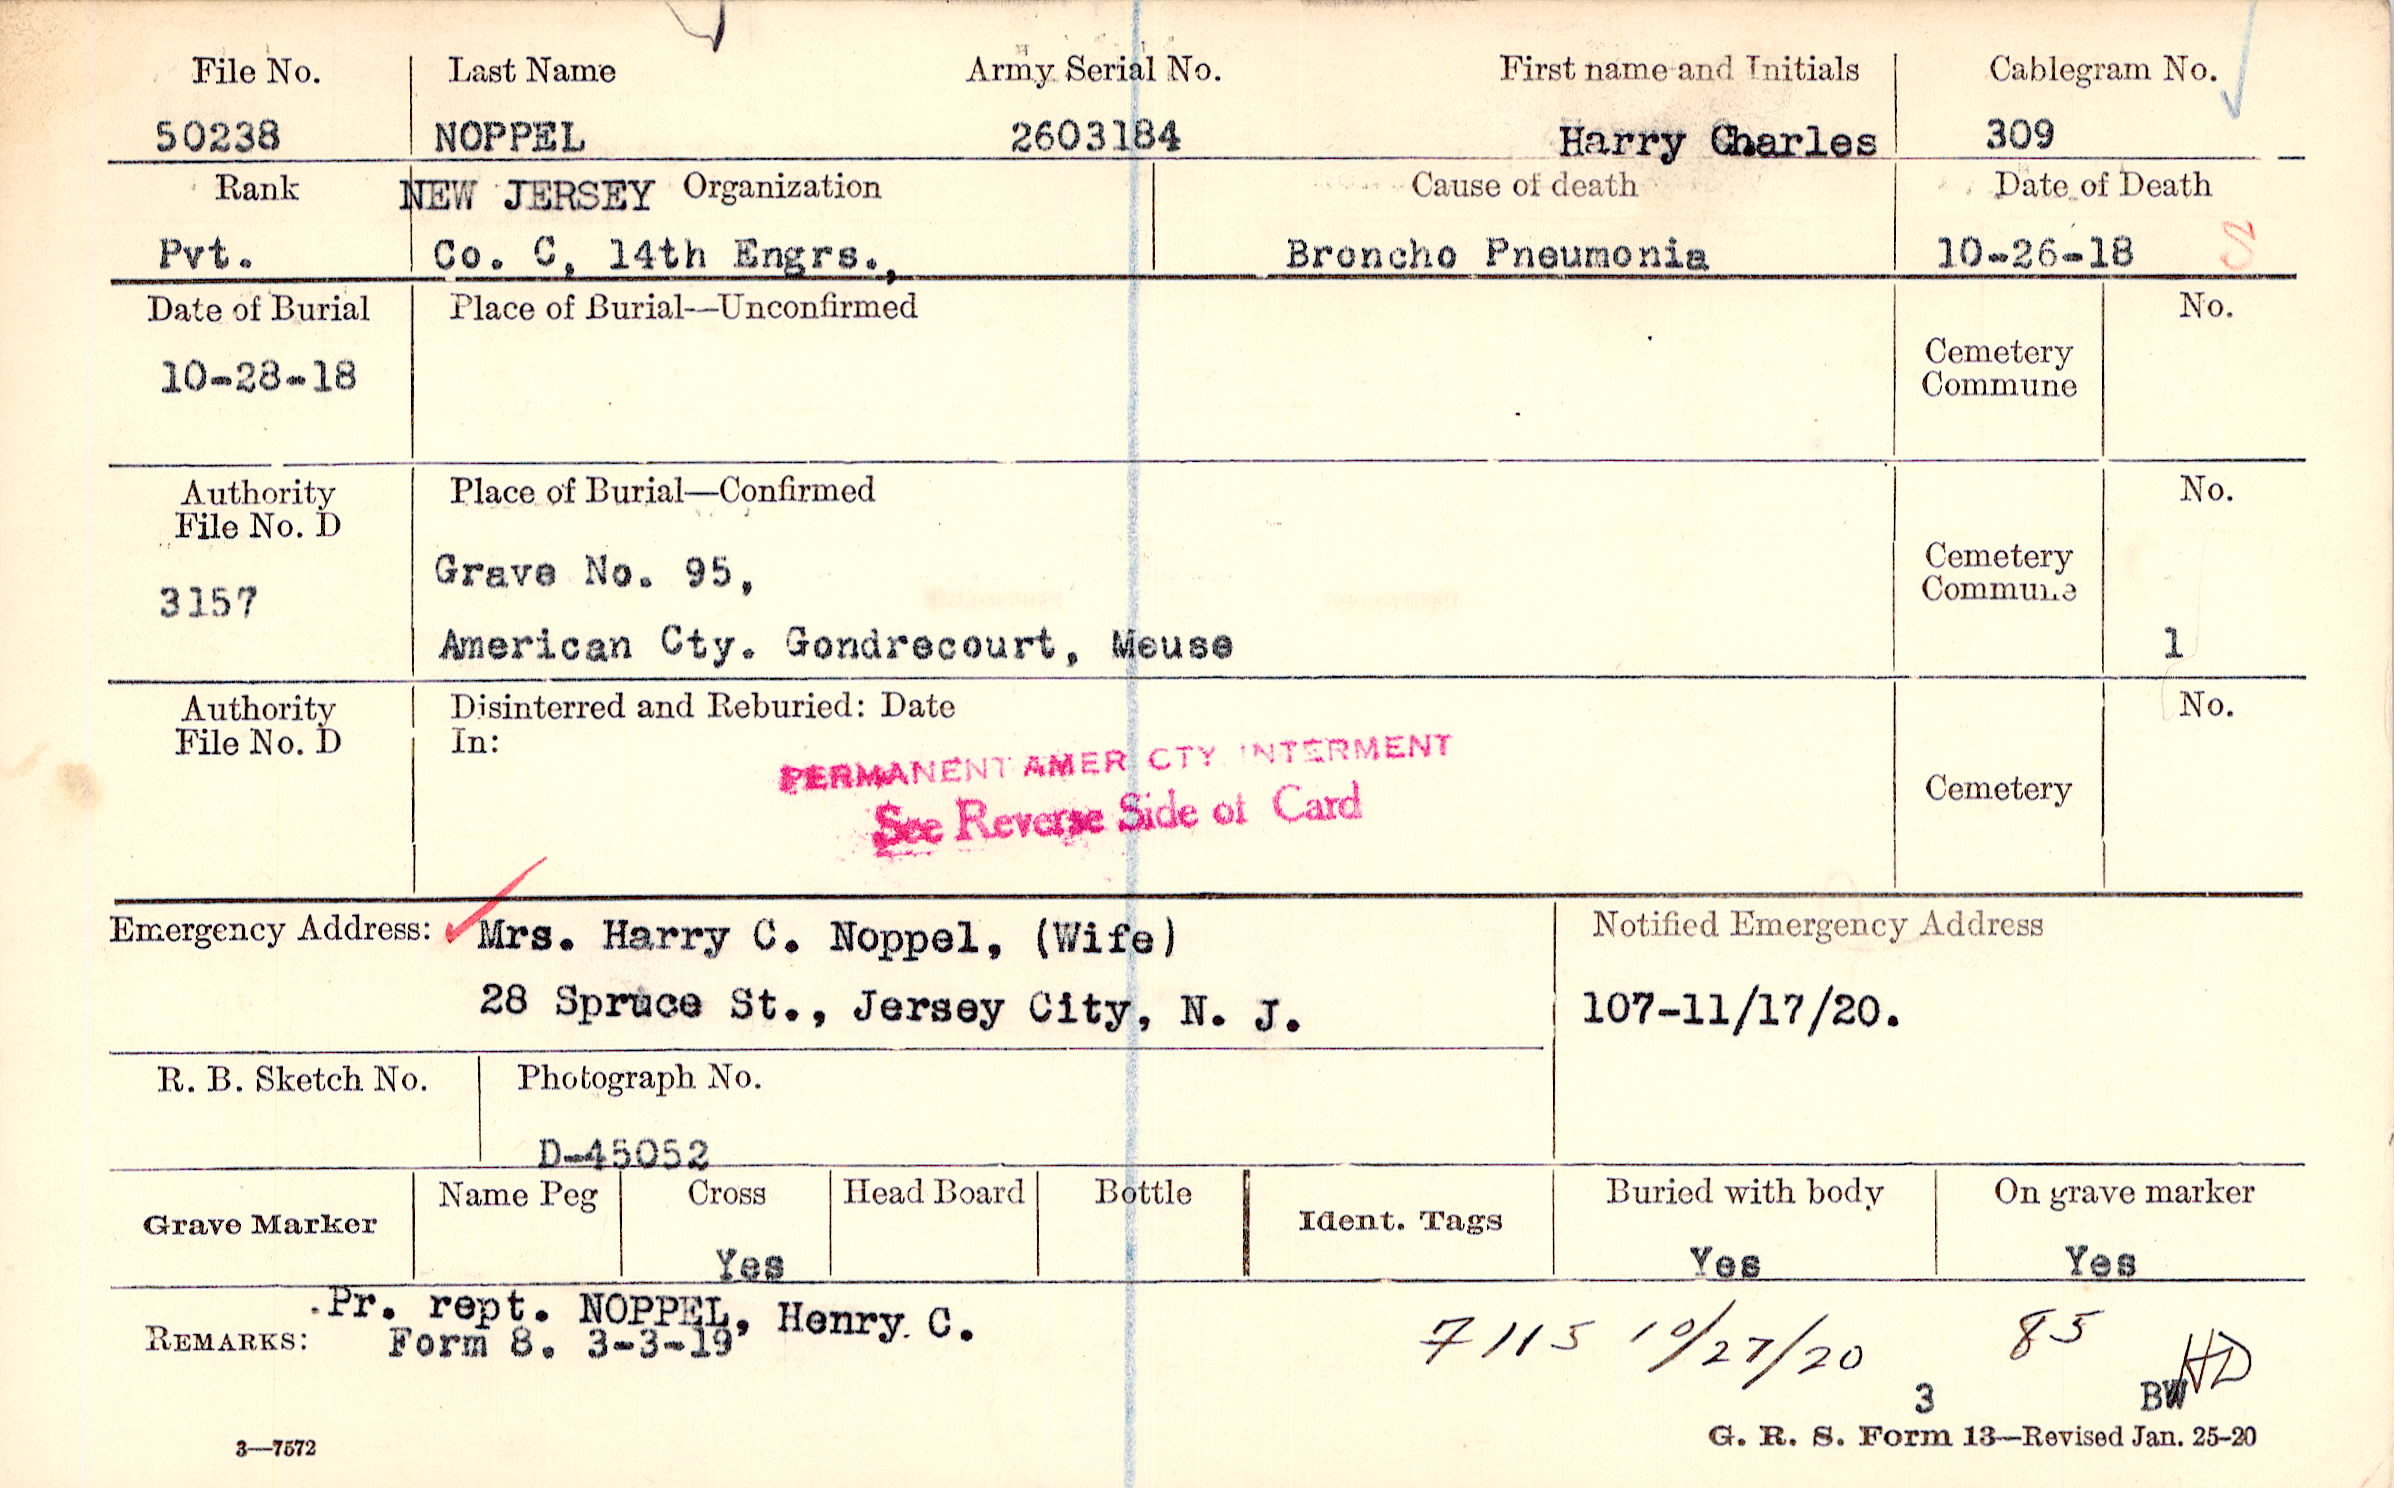 File No. Last Name Army Serial No. First name and Initials Cablegram No.
50238 NOPPEL 2603184 Harry Charles 309
Rank NEW JERSEY Organization Cause of death Date of Death
Pvt. Co. C, 14th Engrs., Broncho Pneumonia 10-26-18
Date of Burial Place of Burial—Unconfirmed No.
Cemetery
Commune
10-28-18
Authority Place of Burial—Confirmed No.
File No. D
Cemetery
Commune
3157 Grave No. 95,
American Cty. Gondrecourt, Meuse 1
Authority Disinterred and Reburied: Date No.
File No. D In:
PERMANENT AMER CTY INTERMENT
See Reverse Side of Card
Cemetery
Emergency Address: Mrs. Harry C. Noppel, (Wife) Notified Emergency Address
28 Spruce St., Jersey City, N. J. 107-11/17/20.
R. B. Sketch No. Photograph No.
D-45052
Grave Marker Name Peg Cross Head Board Bottle Ident. Tags Buried with body On grave marker
Yes Yes Yes
.Pr. rept. NOPPEL, Henry C.
REMARKS: Form 8. 3-3-19 7115 10/27/20 85
HD
3 BW
3—7572 G. R. S. Form 13—Revised Jan. 25-20